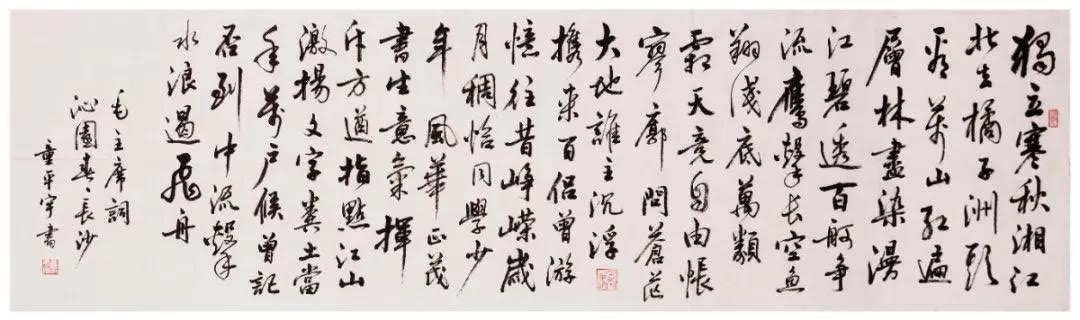 獨立寒秋湘江
北去橘子洲頭
看萬山紅遍
層林盡染漫
江碧透百舸争
流鷹擊长空魚
翔淺底萬類
霜天竞自由帳
寥廓問蒼茫
大地誰主沉浮
携来百侣曾游
憶往昔崢嶸歲
月稠恰同學少
年風華正茂
書生意氣揮
斥方遒指點江山
激揚文字糞土當
年萬户侯曾記
否到中流擊
水浪遏飛舟
毛主席詞
沁園春、長沙
童平宇書